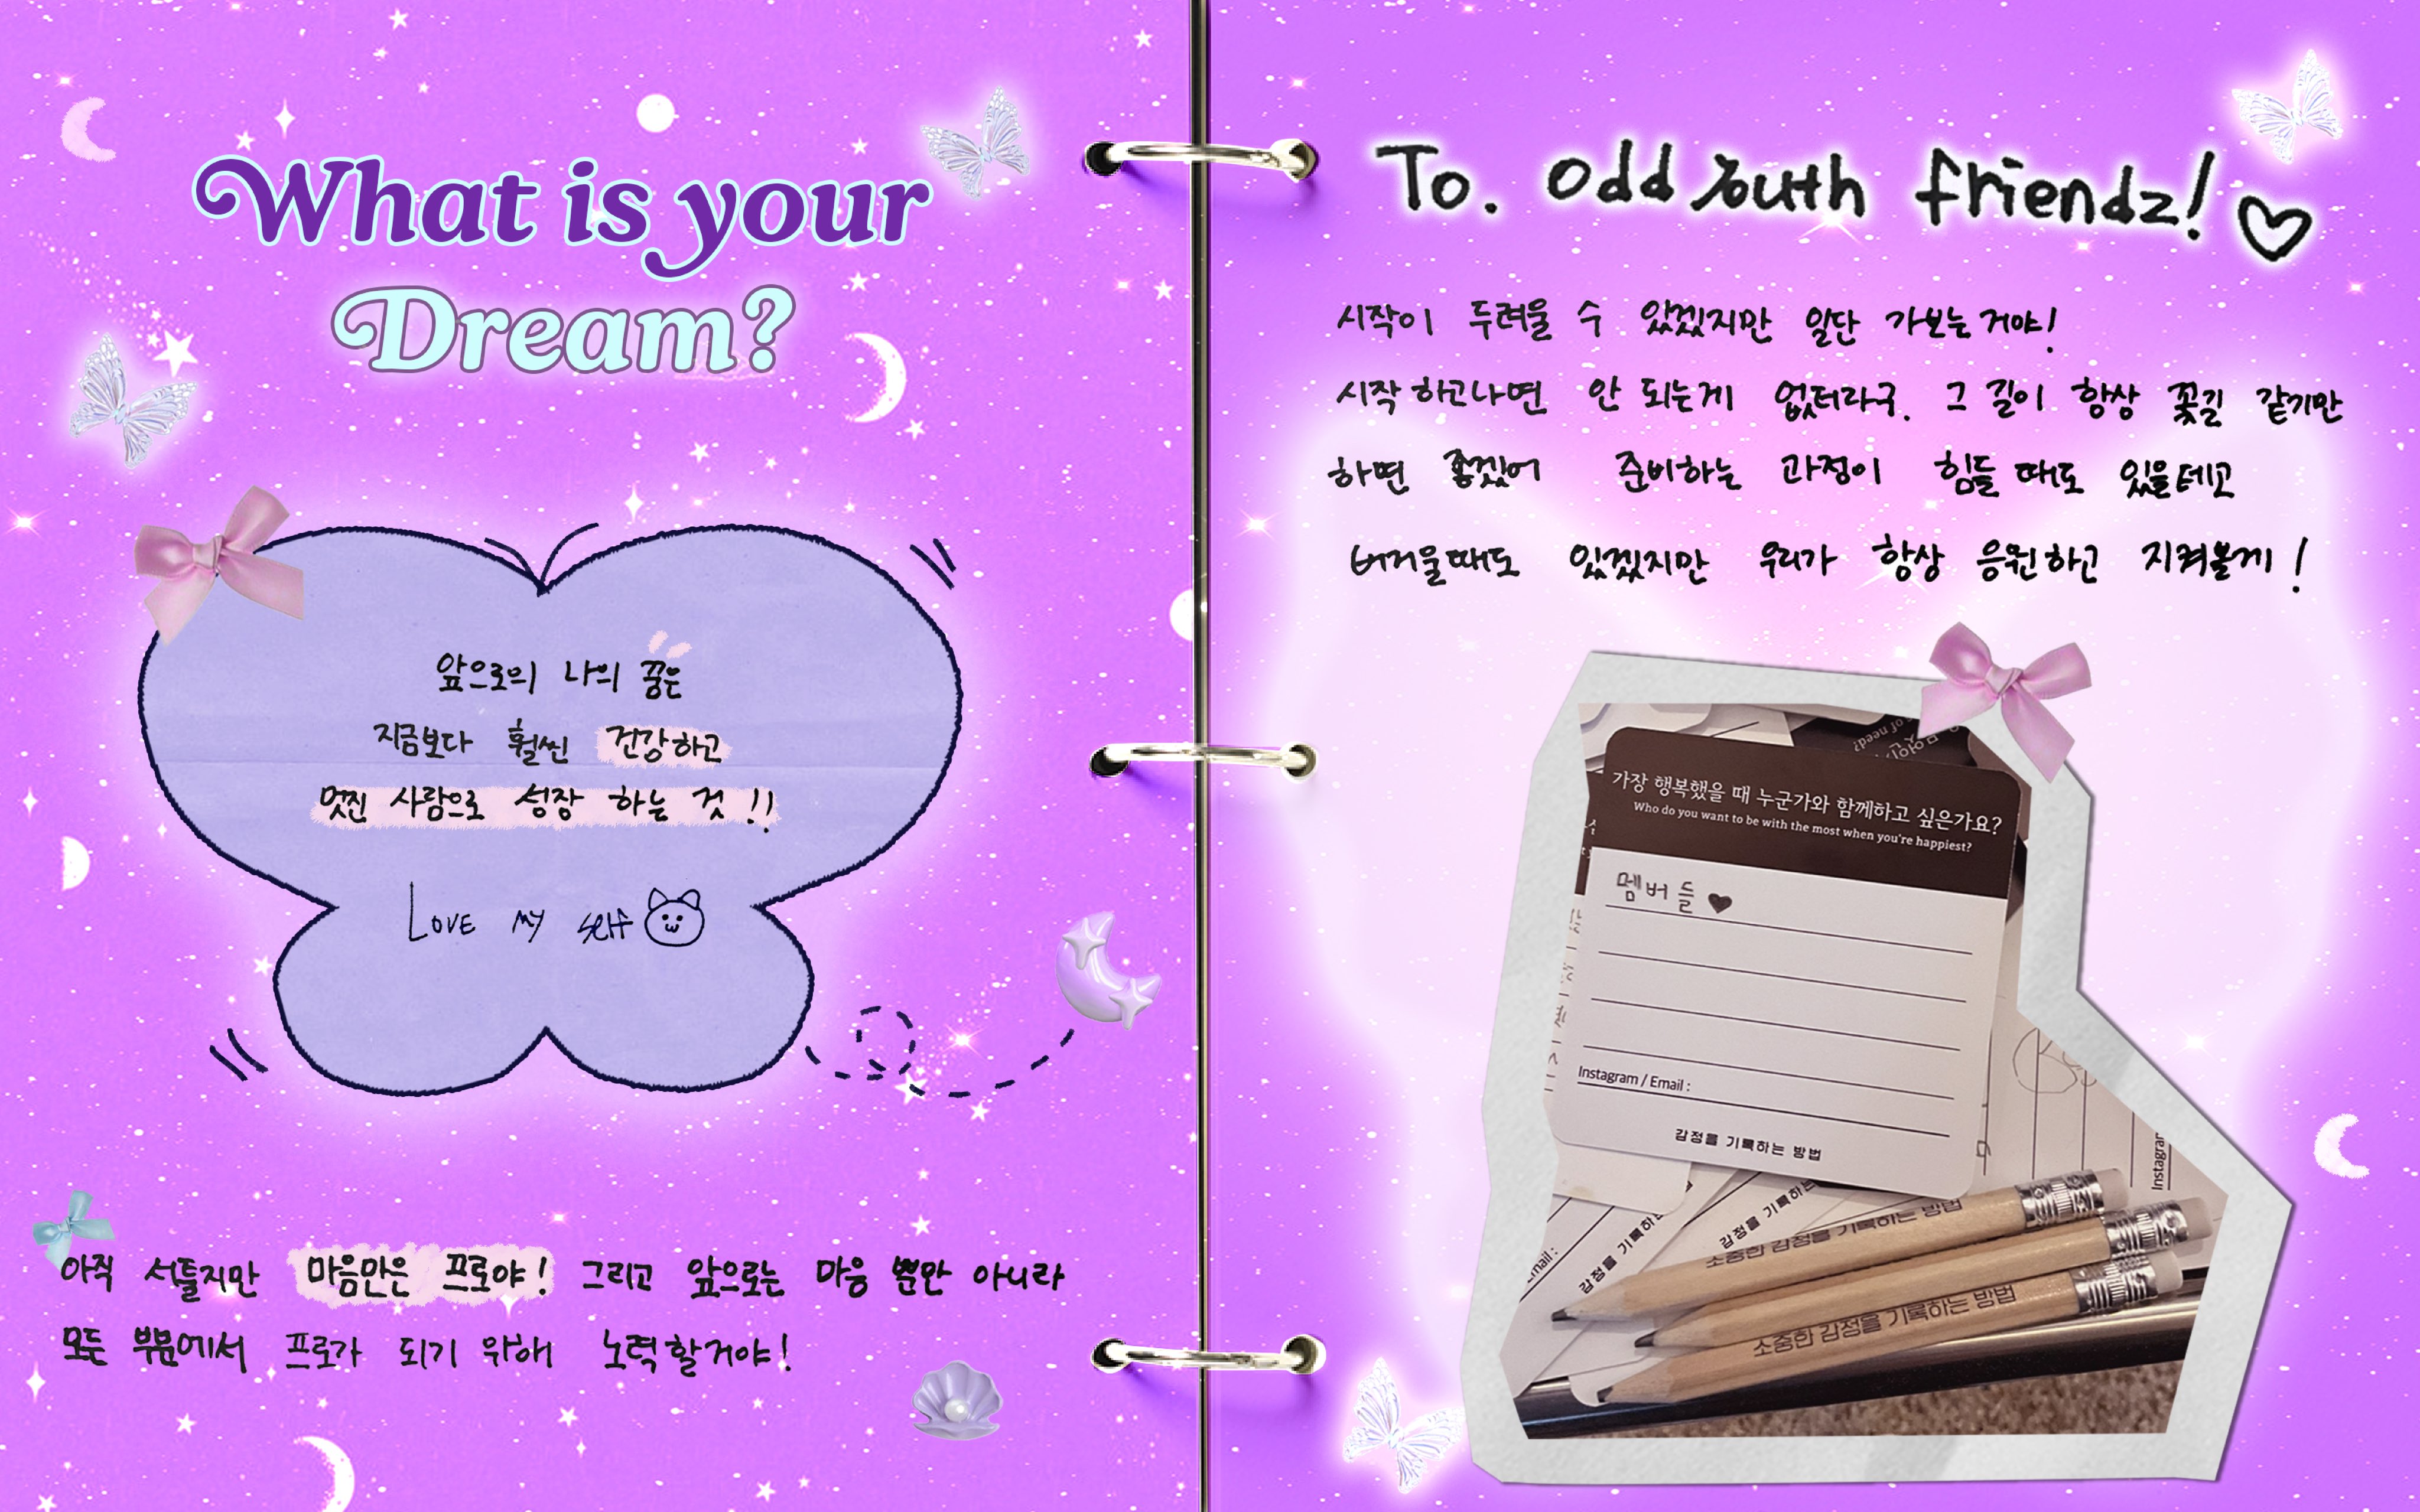 What is your
Dream?
앞으로의 나의 꿈은
지금보다 훨씬 건강하고
멋진 사람으로 성장 하는 것 !!
LOVE MY SELF
아직 서툴지만 마음만은 프로야! 그리고 앞으로는 마음 뿐만 아니라
모든 부분에서 프로가 되기 위해 노력할거야!
To. Odd Youth friendz!
시작이 두려울 수 있겠지만 일단 가보는거야!
시작하고나면 안 되는게 없더라구. 그 길이 항상 꽃길 같기만
하면 좋겠어 준비하는 과정이 힘들 때도 있을테고
버거울때도 있겠지만 우리가 항상 응원하고 지켜볼게!
of need?
가장 행복했을 때 누군가와 함께하고 싶은가요?
Who do you want to be with the most when you're happiest?
멤버들
Instagram / Email :
감정을 기록하는 방법
Instagram
감정을 기록하는 방법
감정을 기록하는
Email :
소중한 감정을 기록하는 방법
소중한 감정을 기록하는 방법